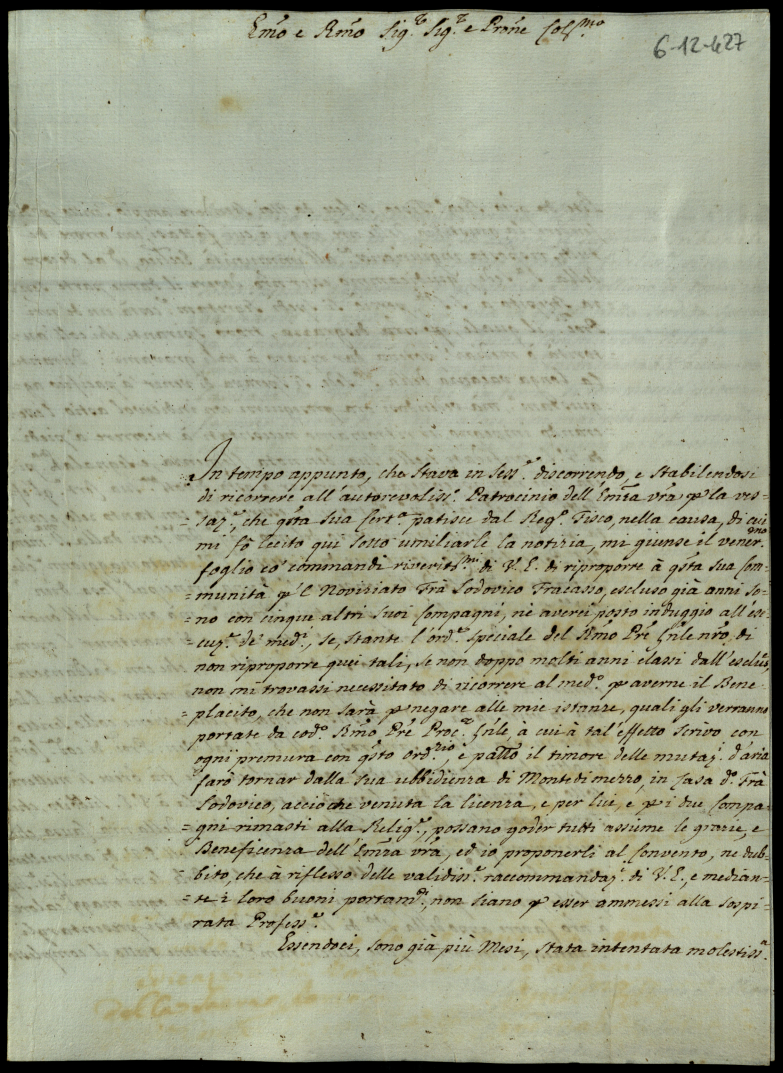 Emo e Rmo Sig.re Sig.re e Prone Col.mo
6-12-427
In tempo appunto, che stava in Sess.e discorrendo, e stabilendosi
di ricorrere all'autorevoliss.o Patrocinio dell'Emza vra p la ves-
=saz.e, che qsta sua Cert.a patisce dal Reg.o Fisco, nella causa, di cui
mi fò lecito qui sotto umiliarle la notizia, mi giunse il vener.mo
foglio co' commandi riverit.mi di V. E. di riproporre à qsta sua Com-
=munità p 'l Noviziato Frà Lodovico Fracasso, escluso già anni so-
=no con cinque altri suoi Compagni, nè averei posto induggio all'ese-
=cuz.e de' med.i, se, stante l'ord.e speciale del Rmo Pre Gnle nro, di
non riproporre quei tali, se non doppo molti anni elassi dall'esclus.e,
non mi trovassi necessitato di ricorrere al med.o p averne il Bene-
=placito, che non sarà p negare alle mie istanze, quali gli verranno
portate da cod.o Rmo Pre Proc.re Gnle, à cui à tal'effetto scrivo con
ogni premura con qsto ord.rio, e passato il timore delle mutaz.i d'aria
farò tornar dalla sua ubbidienza di Montedimezzo, in Casa d.o Frà
Lodovico, acciòche venuta la licenza, e per lui, e p i due Compa-
=gni rimasti alla Relig.e, possano goder tutti assieme le grazie, e
Beneficenza dell'Emza vra, ed io proponerli al Convento, ne dub-
=bito, che à riflesso delle validiss.e raccommandaz.i di V. E., e median-
=te i loro buoni portam.ti, non siano p esser ammessi alla sospi-
rata Profess.e.
Essendoci, sono già più Mesi, stata intentata molestiss.a